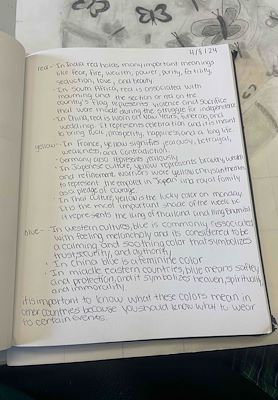 4/8/24
red - In India red holds many important meanings
like fear, fire, wealth, power, purity, fertility,
seduction, love, and beauty
· In South Africa, red is associated with
mourning and the section of red on the
country's flag represents violence and sacrifice
that were made during the struggle for independence
· In China, red is worn at New Years, funerals, and
weddings. It represents celebration and is meant
to bring luck, prosperity, happiness, and a long life.
yellow - In France, yellow signifies jealousy, betrayal,
weakness, and contradiction.
· Germany also represents jealousy
· In Japanese culture, yellow represents bravery, wealth
and refinement. warriors wore yellow chrysanthemums
to represent the emperor in Japan and royal family
as a pledge of courage.
· In Thai culture, yellow is the lucky color on monday
it is the most important shade of the week bc
it represents the king of Thailand, king Bhumibol
blue - In western cultures, blue is commonly associated
with feeling melancholy and its considered to be
a calming and soothing color that symbolizes
trust, security, and authority
· In china blue is a feminine color
· In middle eastern countries, blue means safety
and protection, and it symbolizes heaven, spirituality,
and immortality.
it is important to know what these colors mean in
other countries because you should know what to wear
to certain events.